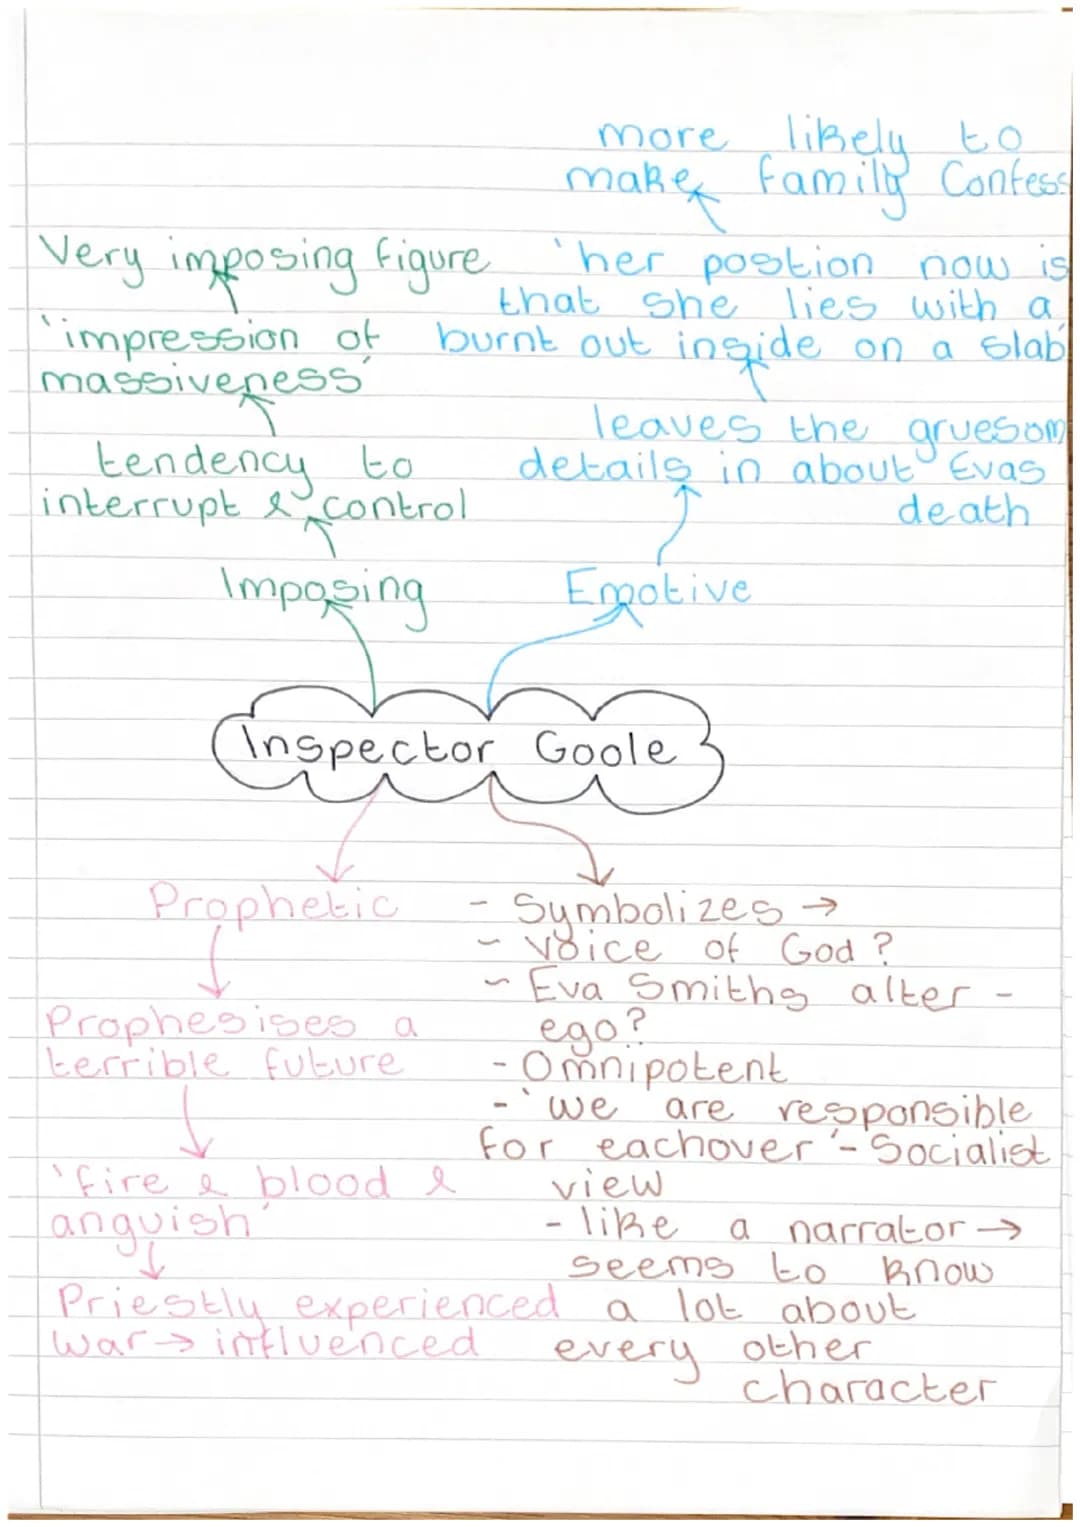 more likely to
make family Confess
'her postion now is
that she lies with a
burnt out inside on a slab'
leaves the gruesom
details in about Evas
death
Emotive
Very imposing figure
'impression of
massiveness'
tendency to
interrupt & control
Imposing
Inspector Goole
Prophetic
Prophesises a
terrible future
'fire & blood &
anguish'
Priestly experienced
war → influenced
- Symbolizes →
- voice of God?
- Eva Smiths alter-
ego?
- Omnipotent
- 'we are responsible
for eachover' - Socialist
view
- like a narrator →
seems to know
a lot about
every other
character